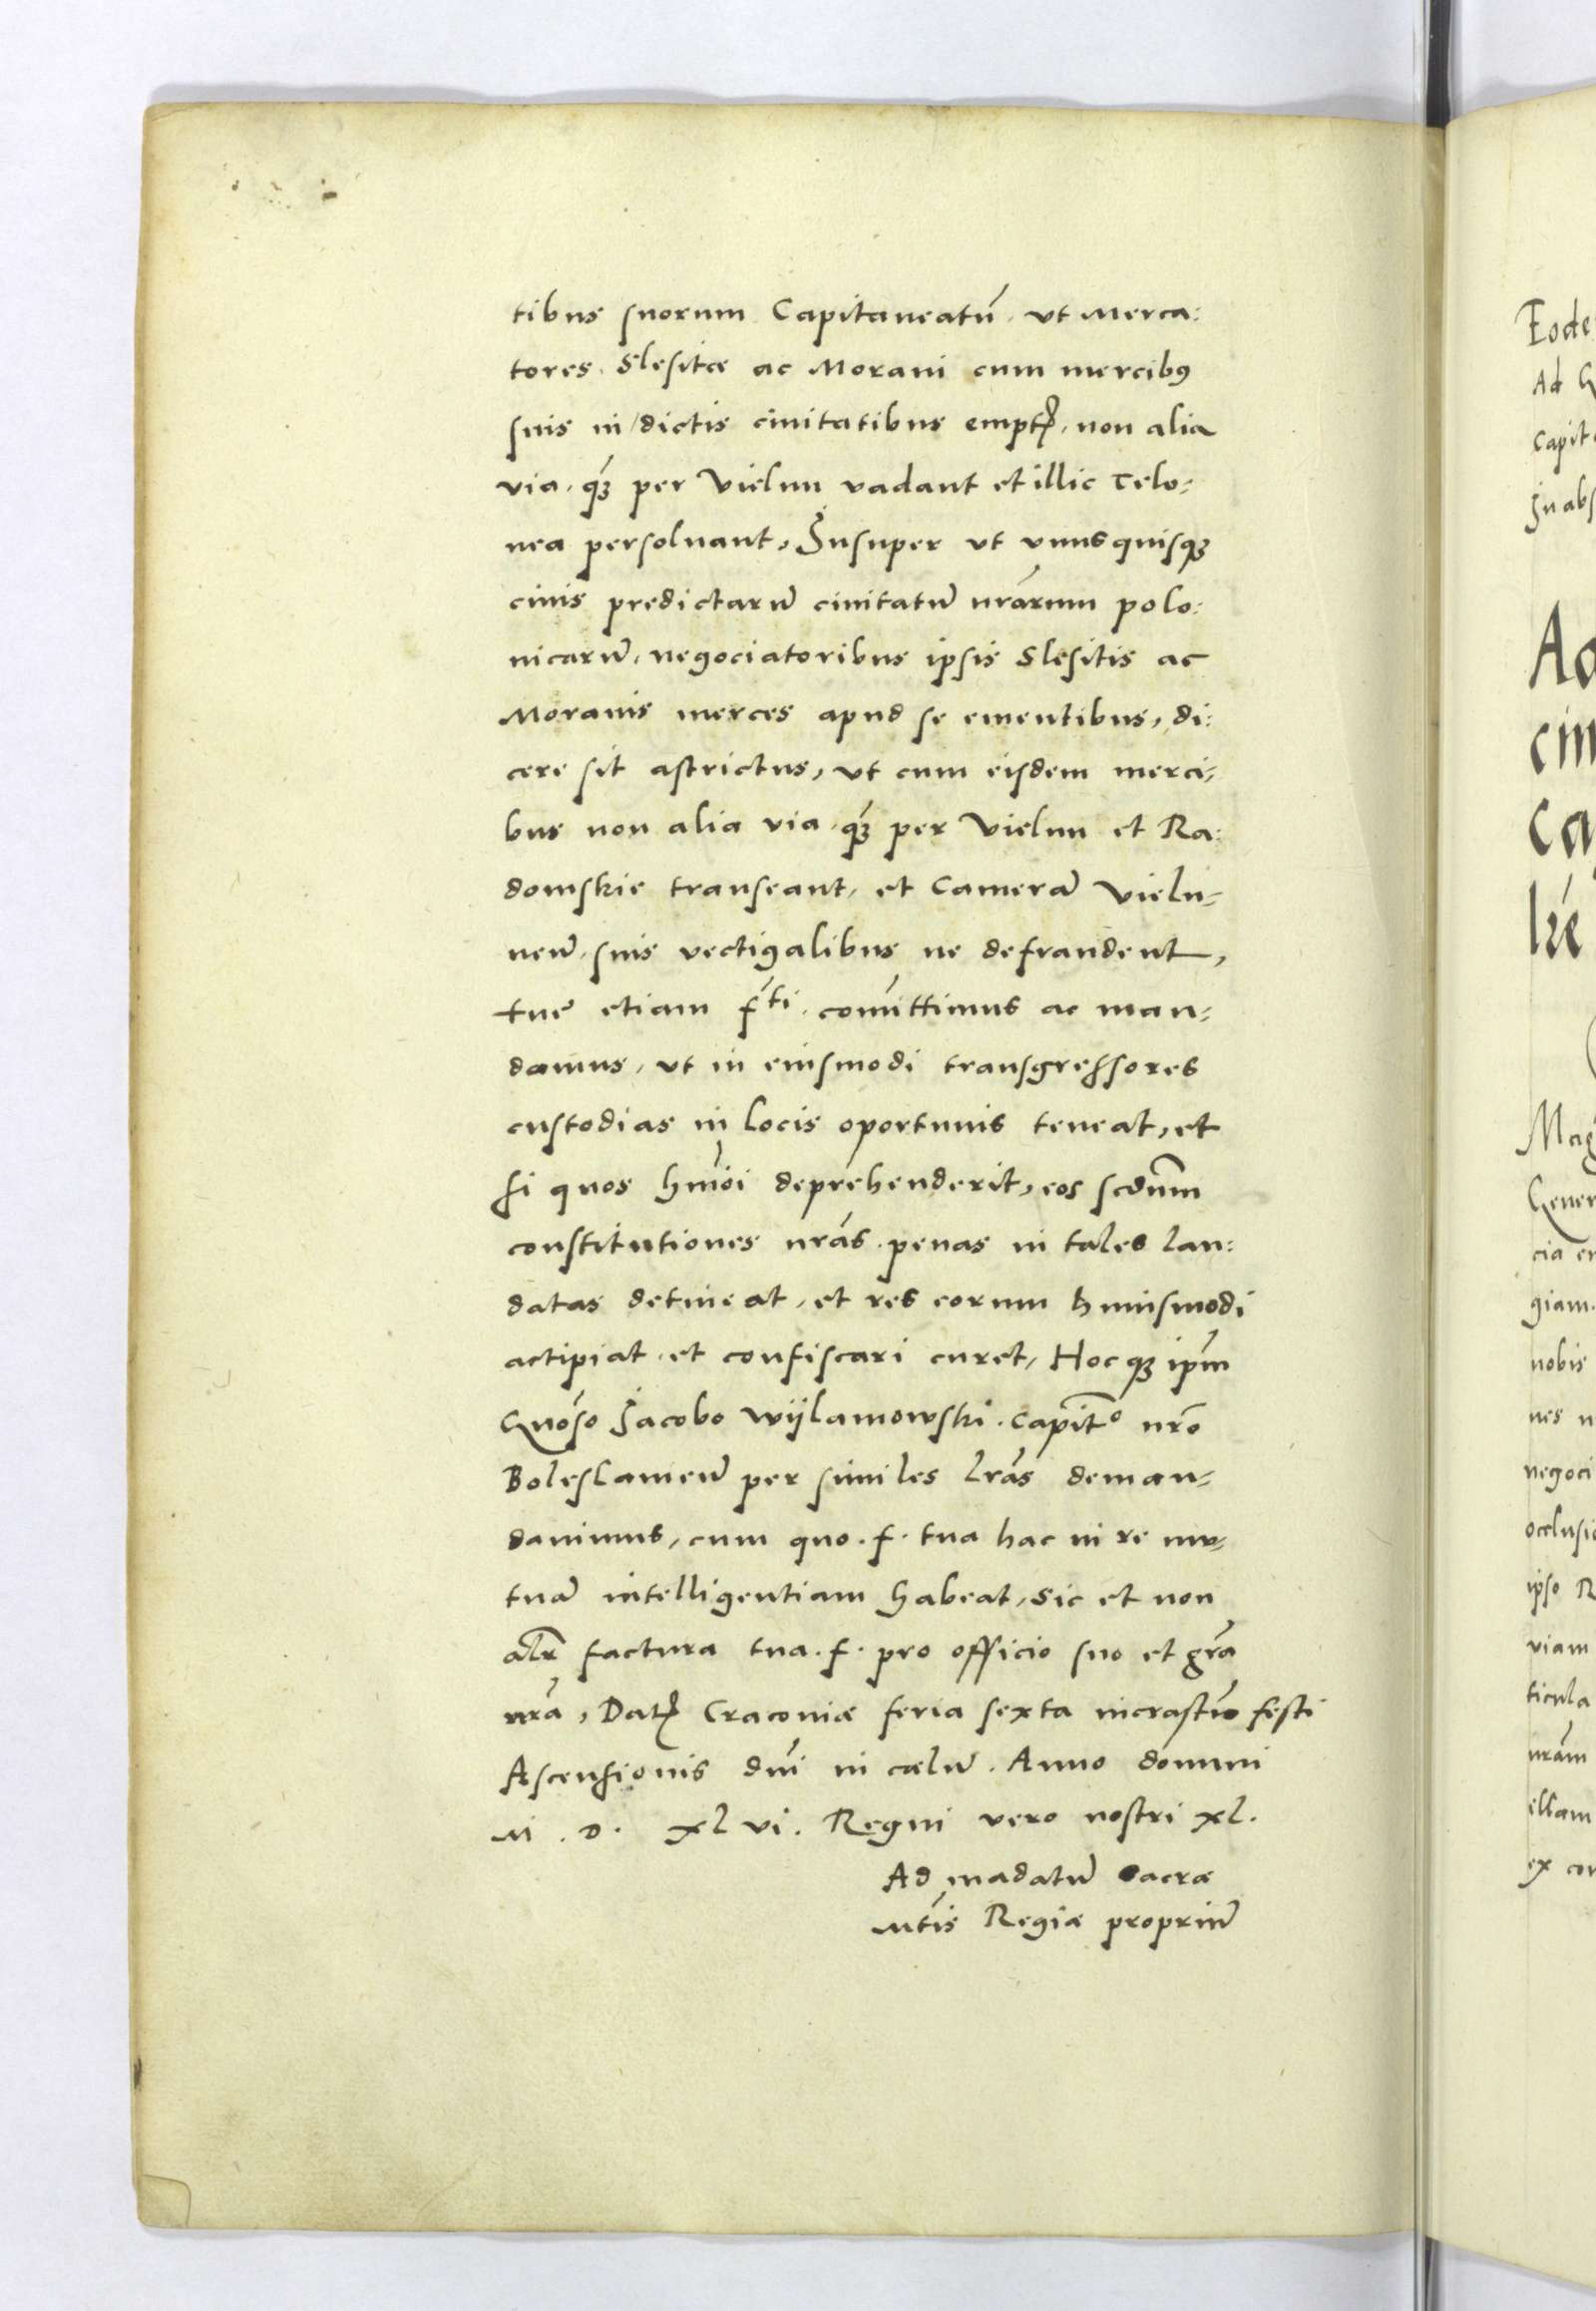 tibus suorum Capitaneatuū. ut Merca:
tores. Slesitæ ac Moravi cum mercibꝯ
suis in dictis civitatibus emptꝭ, non alia
via. qꝫ́ per Vielun vadant et illic Telo:
nea persolvant, Insuper ut unusquisqꝫ
civis predictarū civitatū nrārum polo:
nicarū, negociatoribus ipsis Slesitis ac
Moravis merces apud se ementibus, di:
cere sit astrictus, ut cum eisdem merci:
bus non alia via. qꝫ́ per Vielun et Ra:
domskie transeant, et Camerā Vielu:
neñ. suis vectigalibus ne defraudent,
tuę etiam f̄ti. com̄ittimus ac man:
damus, ut in eiusmodi transgressores
custodias in locis oportunis teneat, et
si quos hmōi deprehenderit, eos scdūm
constitutiones nrās. penas in tales lau:
datas detineat, et res eorum huiusmodi
accipiat. et confiscari curet, Hocqꝫ ipm̄
Gnōso Jacobo Wijlamowski. Capit̄o nrō
Boleslavieñ per similes lrās deman:
davimus, cum quo. f. tua hac in re mu:
tuā intelligentiam habeat, sic et non
alr̄ factura tua. f. pro officio suo et grā
nrā, Datꝭ Cracoviæ feria sexta incrastīo festi
Ascensionis dn̄i in cælū. Anno domini
M. D. XL vi. Regni vero nostri XL.
Ad madatū Sacræ
Mt̄is Regiæ propriū
Eode
Ad G
Capit
In abs
Ad
cin
Ca
lié
Mag
Gener
cia en
giam.
nobis
nes n
negoci
occlusio
ipso R
viam
ticula
nrām
illam
ex con